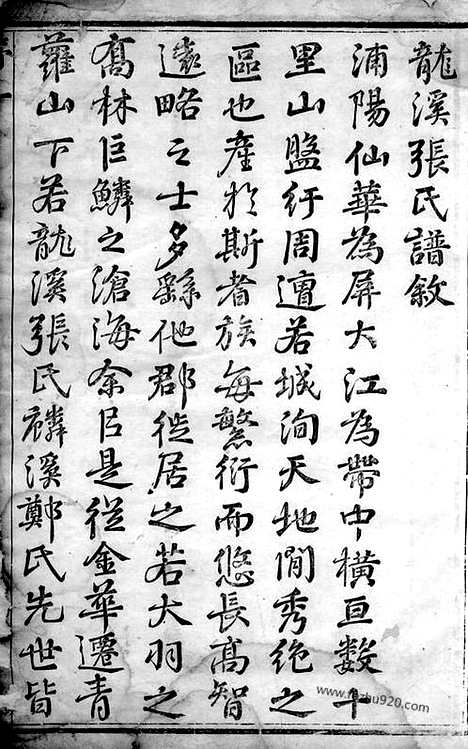 龍溪張氏譜敘
浦陽仙華為屏大江為帶中橫亘數十
里山盤紆周邅若城洵天地間秀絶之
區也產於斯者族每繁衍而悠長高智
遠略之士多繇他郡徙居之若大羽之
喬林巨鱗之滄海余㠯是從金華遷青
蘿山下若龍溪張氏麟溪鄭氏先世皆
www.jiapu920.com